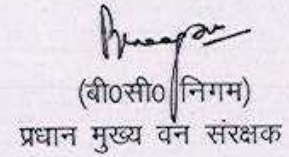 (बी0सी0 निगम)
प्रधान मुख्य वन संरक्षक